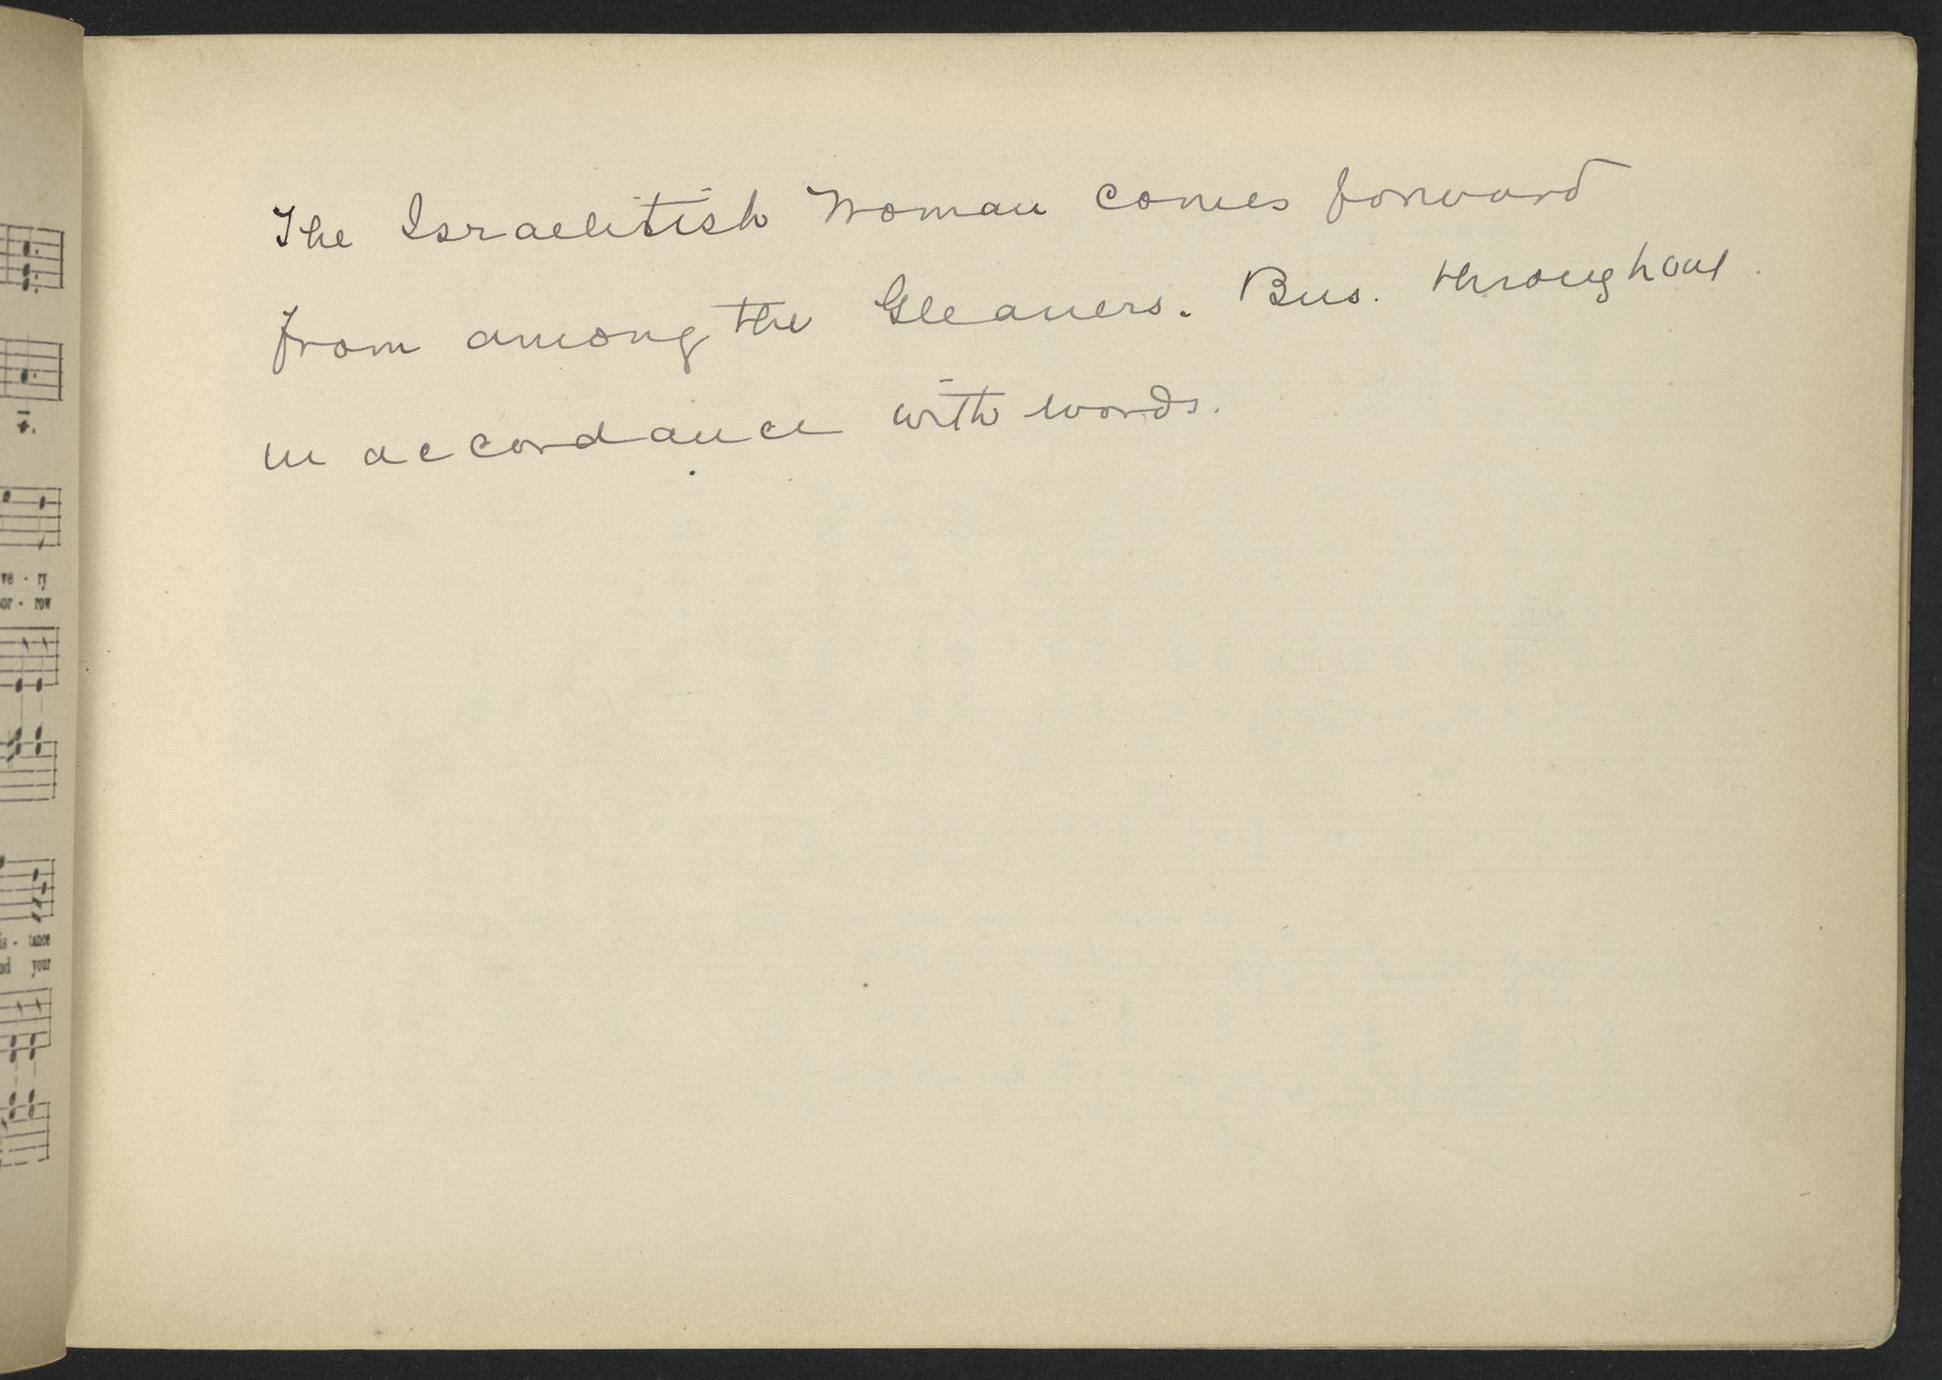 The Israelitish Woman comes forward
from among the Gleaners. Bus. throughout
in accordance with words.
ve - ry
sor - row
is - tance
your